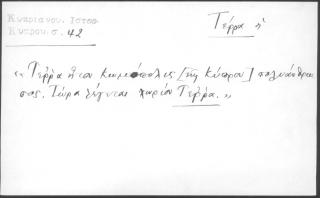 Κυπριανου. Ιστορ
Κυπρου. σ. 42
Τέρρα ἡ
« Τέρρα ἦτον Κωμόπολις [τῆς Κύπρου] πολυάνθρω
πος. Τώρα λέγεται χωρίον Τέρρα. »